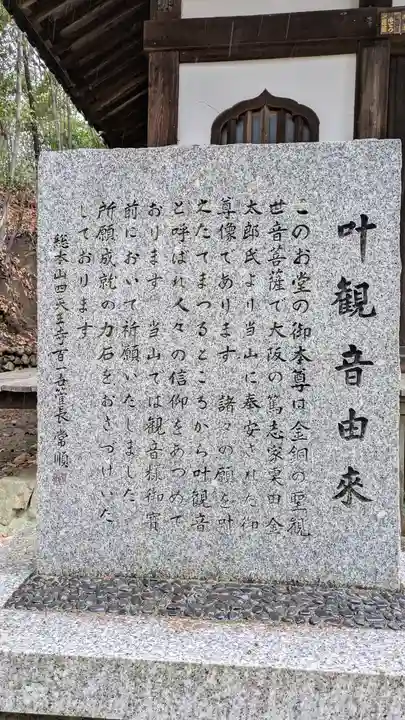 叶観音由來
このお堂の御本尊は金銅の聖観
世音菩薩で大阪の篤志家栗田金
太郎氏より当山に奉安された御
尊像であります 諸々の願を叶
えたてまつるところから叶観音
と呼ばれ人々の信仰をあつめて
おります 当山では観音様御宝
前において祈願いたしました
所願成就の力石をおさづけいた
しております
総本山四天王寺百一吾管長常順